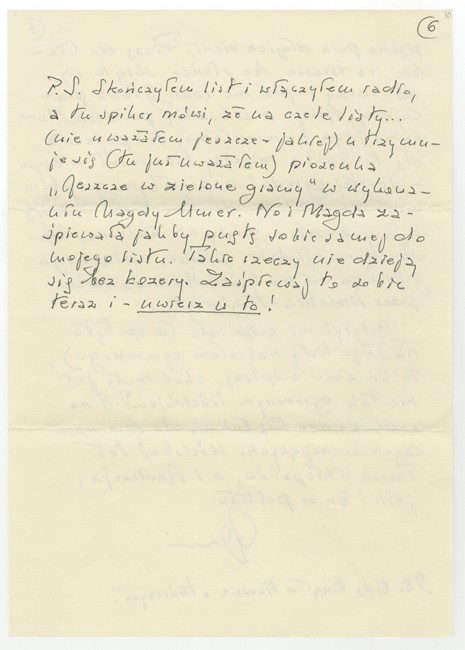 6
P.S. Skończyłem list i włączyłem radio,
a tu spiker mówi, że na czele listy...
(nie uważałem jeszcze - jakiej) utrzymu-
je się (tu już uważałem) piosenka
„Jeszcze w zielone gramy" w wykona-
niu Magdy Umer. No i Magda za-
śpiewała jakby puętę sobie samej do
mojego listu. Takie rzeczy nie dzieją
się bez kozery. Zaśpiewaj to sobie
teraz i - uwierz w to!